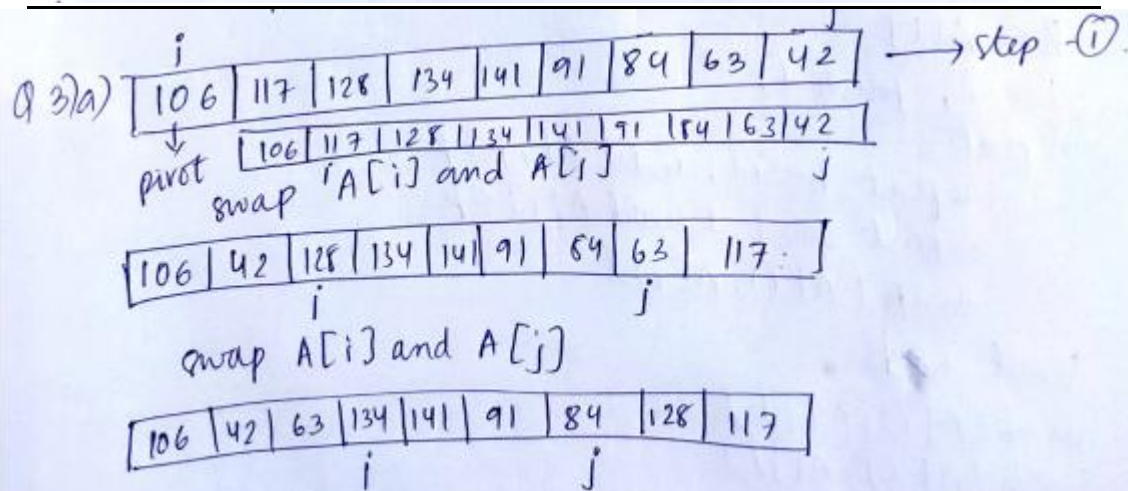 i j
Q 3)a) 106 117 128 134 141 91 84 63 42 → step -①.
106 117 128 134 141 91 84 63 42
pivot i j
swap A[i] and A[j]
106 42 128 134 141 91 84 63 117.
i j
swap A[i] and A[j]
106 42 63 134 141 91 84 128 117
i j